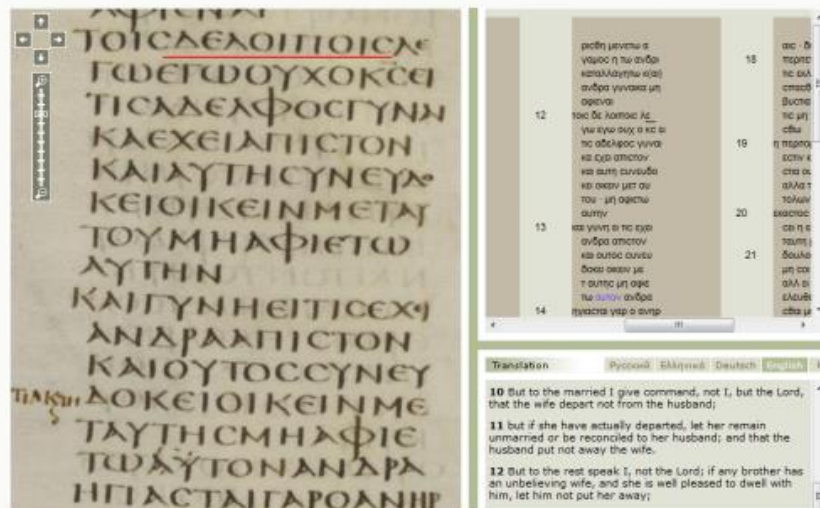 ΤΟΙCΔΕΛΟΙΠΟΙCΛΕ
ΓΩΕΓΩΟΥΧΟΚCΕΙ
ΤΙCΑΔΕΛΦΟCΓΥΝΑΙ
ΚΑΕΧΕΙΑΠΙCΤΟΝ
ΚΑΙΑΥΤΗCΥΝΕΥΔΟ
ΚΕΙΟΙΚΕΙΝΜΕΤΑΥ
ΤΟΥΜΗΑΦΙΕΤΩ
ΑΥΤΗΝ
ΚΑΙΓΥΝΗΕΙΤΙCΕΧΕΙ
ΑΝΔΡΑΑΠΙCΤΟΝ
ΚΑΙΟΥΤΟCCΥΝΕΥ
ΔΟΚΕΙΟΙΚΕΙΝΜΕ
ΤΑΥΤΗCΜΗΑΦΙΕ
ΤΩΑΥΤΟΝΑΝΔΡΑ
ΗΓΙΑCΤΑΙΓΑΡΟΑΝΗΡ
ρισθη μενετω α
γαμος η τω ανδρι
καταλλαγητω κ(αι)
ανδρα γυναικα μη
αφιεναι
12 τοις δε λοιποις λε
γω εγω ουχ ο κς ει
τις αδελφος γυναι
κα εχει απιστον
και αυτη συνευδο
κει οικειν μετ αυ
του · μη αφιετω
αυτην
13 και γυνη ει τις εχει
ανδρα απιστον
και ουτος συνευ
δοκει οικειν με
τ αυτης μη αφιε
τω αυτον ανδρα
14 ηγιασται γαρ ο ανηρ
18
19
20 εκαστος
21 δουλο
Translation Русский Ελληνικά Deutsch English
10 But to the married I give command, not I, but the Lord,
that the wife depart not from the husband;
11 but if she have actually departed, let her remain
unmarried or be reconciled to her husband; and that the
husband put not away the wife.
12 But to the rest speak I, not the Lord; if any brother has
an unbelieving wife, and she is well pleased to dwell with
him, let him not put her away;